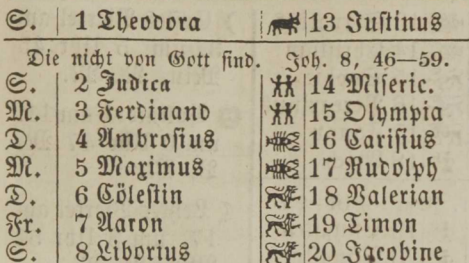 S. 1 Theodora 13 Justinus
Die nicht von Gott sind. Joh. 8, 46—59.
S. 2 Judica 14 Miseric.
M. 3 Ferdinand 15 Olympia
D. 4 Ambrosius 16 Carisius
M. 5 Maximus 17 Rudolph
D. 6 Cölestin 18 Valerian
Fr. 7 Aaron 19 Timon
S. 8 Liborius 20 Jacobine